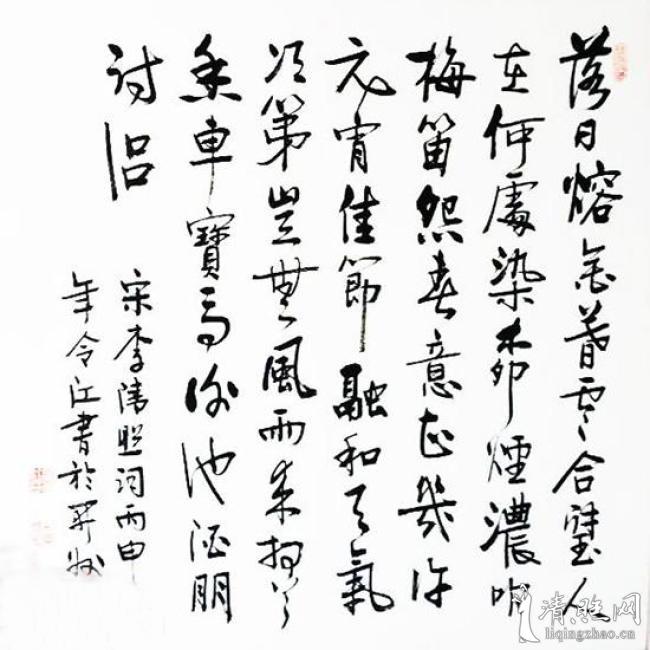 落日熔金暮雲合璧人
在何處染柳煙濃吹
梅笛怨春意知幾許
元宵佳節融和天氣
次第豈無風雨來相召
香車寶馬謝他酒朋
詩侶
宋李清照詞丙申
年令江書於州
清照网
liqingzhao.cn